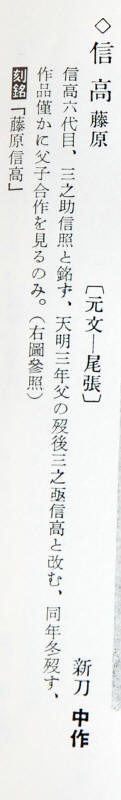 ◇信高 藤原 〔元文―尾張〕 新刀 中作
信高六代目、三之助信照と銘ず、天明三年父の歿後三之亟信高と改む、同年冬歿す、
作品僅かに父子合作を見るのみ。(右圖參照)
刻銘「藤原信高」